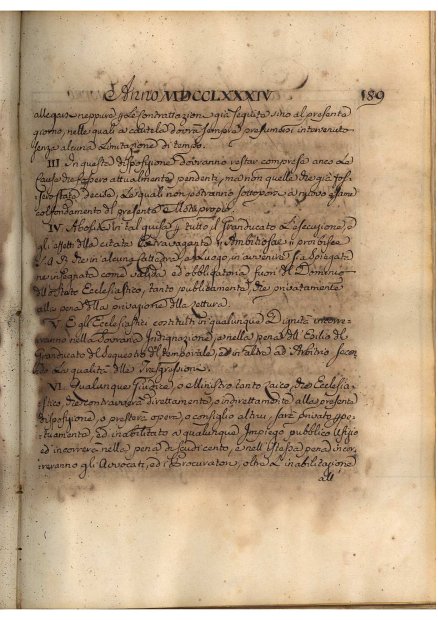 Anno MDCCLXXXIV 189
allegarsi neppure p le contrattazioni già seguite sino al presente
giorno, nelle quali a cautela dovrà sempre presumersi intervenuto
senza alcuna limitazione di tempo.
III In questa disposizione dovranno restar comprese anco le
Cause che fossero attualmente pendenti, ma non quelle che già fos-
sero state decise, le quali non potranno sottoporsi a nuovo esame
col fondamento del presente Motuproprio.
IV Abolita in tal guisa p tutto il Granducato l'esecuzione, e
gli effetti della citata Estravagante Ambitiosae proibisce
S. A. R. che in alcuna Cattedra, o Luogo, in avvenire sia spiegata
ne insegnata come valida, ed obbligatoria fuori del Dominio
dello Stato Ecclesiastico, tanto pubblicamente, che privatamente
alla pena della privazione della Lettura.
V. E gli Ecclesiastici costituiti in qualunque Dignità incorre-
ranno nella Sovrana Indignazione, e nella pena dell' Esilio del
Granducato del sequestro del temporale, ed in altra ad Arbitrio secon-
do la qualità delle Trasgressioni.
VI. Qualunque Giudice, o Ministro tanto Laico, che Ecclesia-
stico che contravverrà direttamente, o indirettamente alla presente
disposizione, o presterà opera, o consiglio altrui, sarà privato ppe-
tuamente, ed inabilitato a qualunque Impiego pubblico Ufizio
ed incorrerà nella pena di scudi cento, e nell' istessa pena incor-
reranno gli Avvocati, ed i Procuratori, oltre l' inabilitazione
all